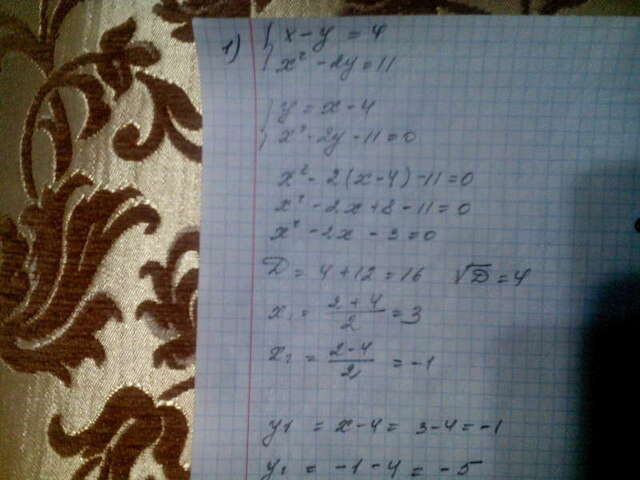 1) { x - y = 4
x² - 2y = 11
{ y = x - 4
x² - 2y - 11 = 0
x² - 2(x - 4) - 11 = 0
x² - 2x + 8 - 11 = 0
x² - 2x - 3 = 0
D = 4 + 12 = 16 √D = 4
x₁ = (2 + 4)/2 = 3
x₂ = (2 - 4)/2 = -1
y₁ = x - 4 = 3 - 4 = -1
y₂ = -1 - 4 = -5